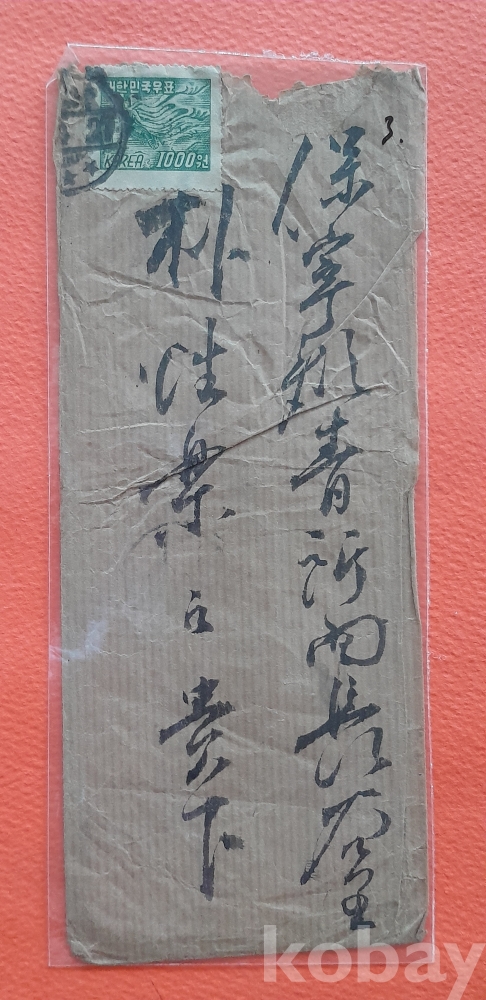 대한민국우표
KOREA 1000원
3.
保寧郡青所面長谷里
朴性 氏 貴下
kobay